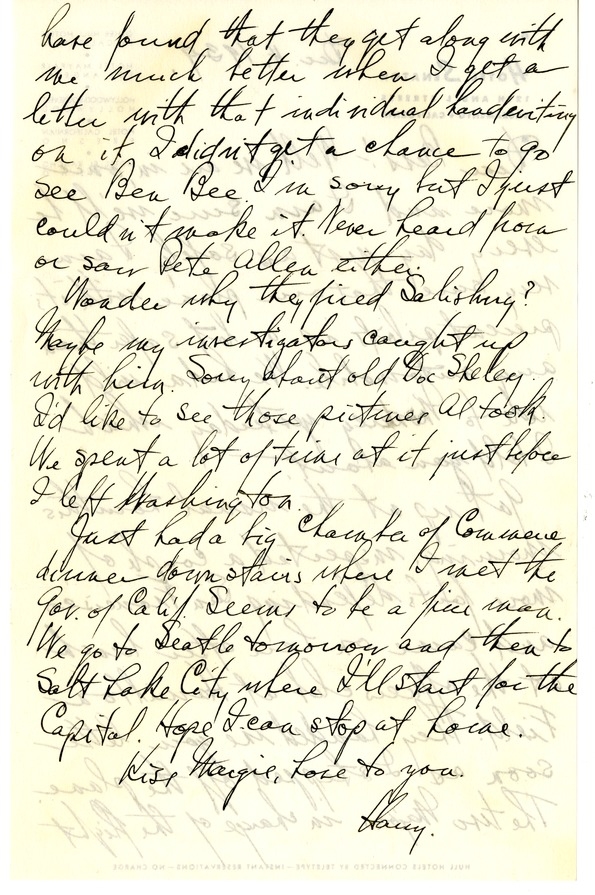 have found that they get along with
me much better when I get a
letter with that individual handwriting
on it. I didn't get a chance to go
see Ben Bee. I'm sorry but I just
couldn't make it. Never heard from
or saw Pete Allen either.
Wonder why they fired Salisbury?
Maybe my investigators caught up
with him. Sorry about old Doc Sheley.
I'd like to see those pictures Al took.
We spent a lot of time at it just before
I left Washington.
Just had a big Chamber of Commerce
dinner down stairs where I met the
Gov. of Calif. Seems to be a fine man.
We go to Seatle tomorrow and then to
Salt Lake City where I'll start for the
Capitol. Hope I can stop at home.
Kiss Margie, love to you.
Harry.
HULL HOTELS CONNECTED BY TELETYPE—INSTANT RESERVATIONS—NO CHARGE